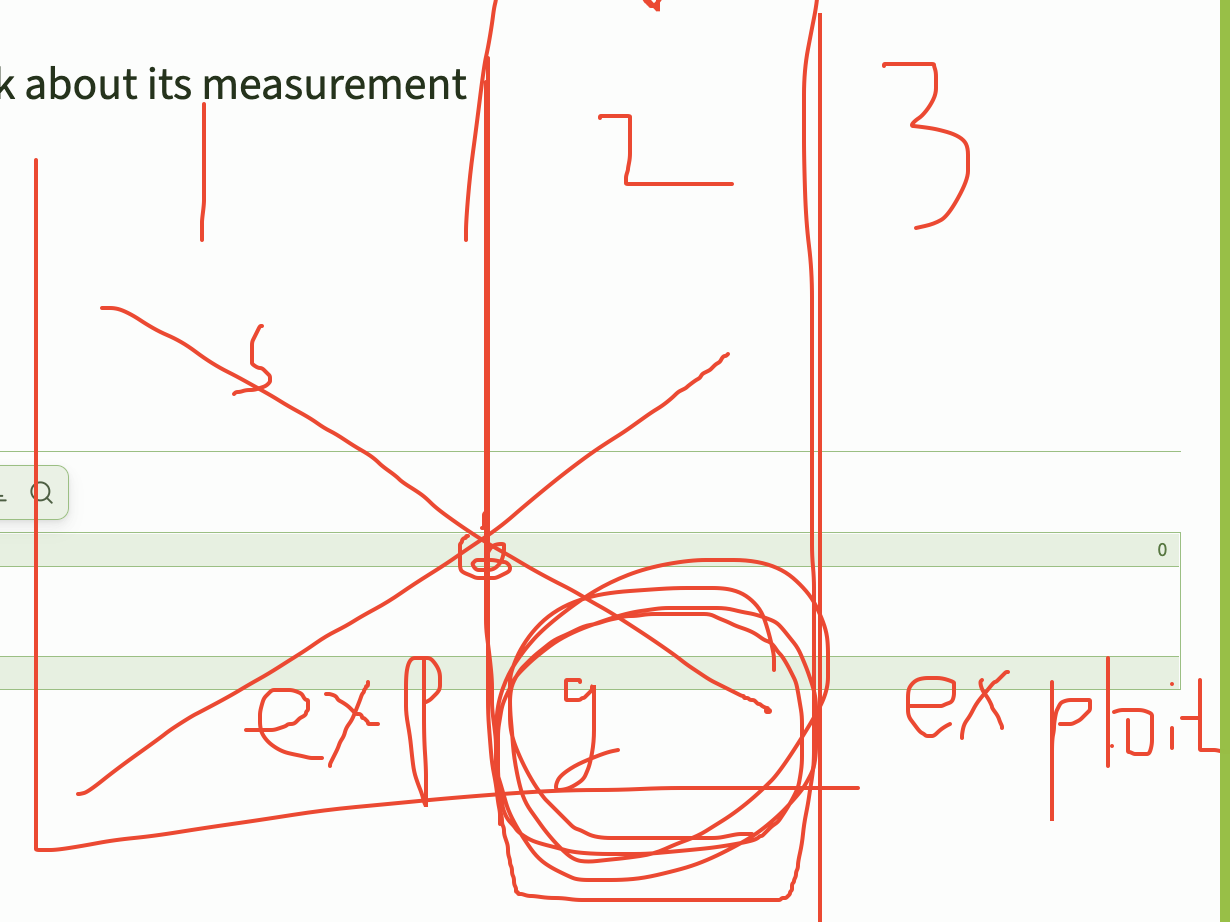 k about its measurement
1 2 3
S
0
exp g exploit